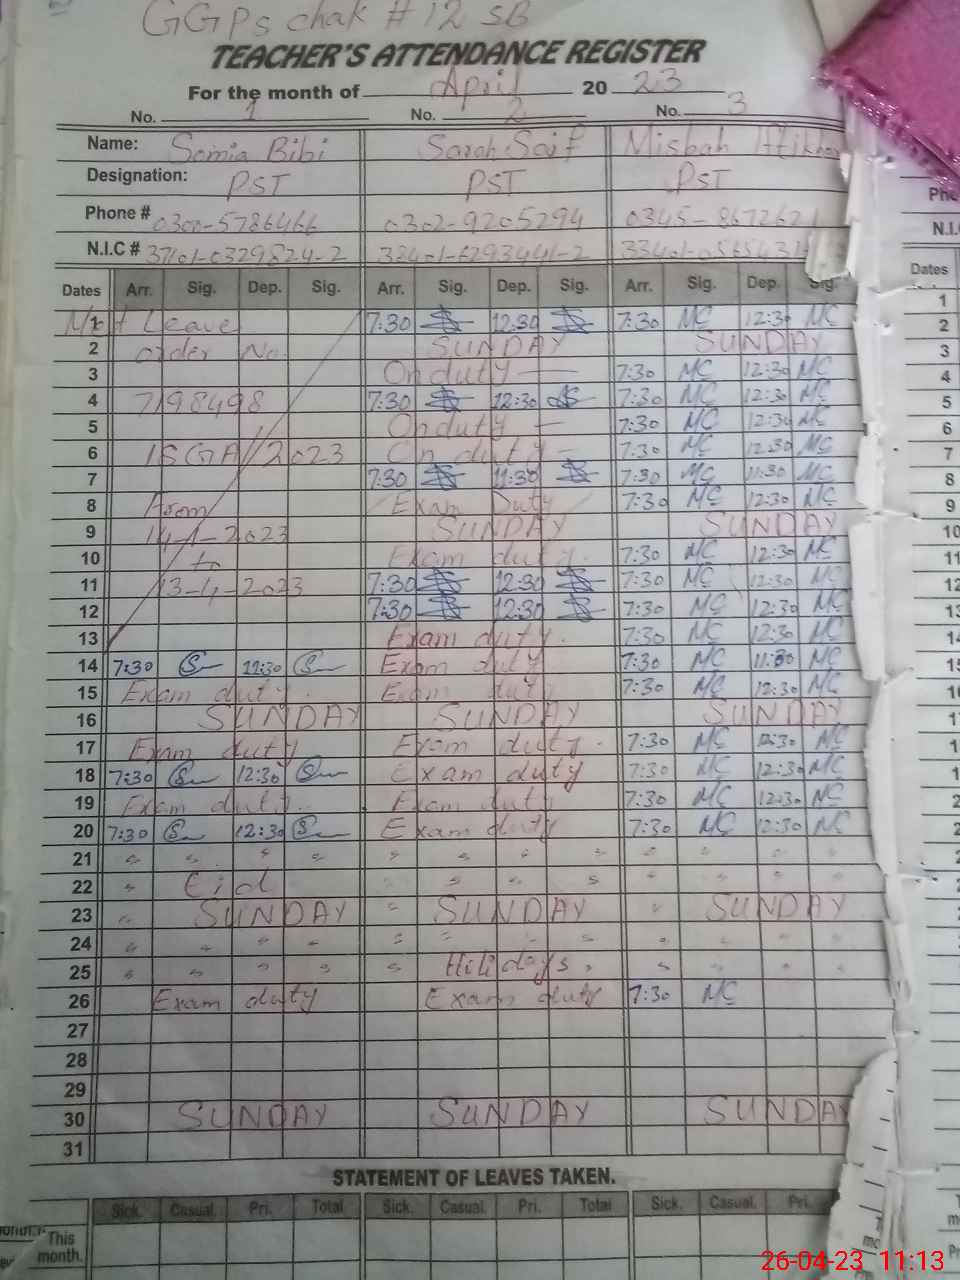 GGPS chak # 12 SB
TEACHER'S ATTENDANCE REGISTER
For the month of April 20 23
No. 1 No. 2 No. 3
Name: Samia Bibi Sarah Saif Misbah Iftikhar
Designation: PST PST PST
Phone # 0300-5786466 0302-9205294 0345-8672621
N.I.C # 37101-0329824-2 38401-6293441-2
Dates Arr. Sig. Dep. Sig. Arr. Sig. Dep. Sig. Arr. Sig. Dep. Sig.
Leave 7:30 12:30 7:30 MC 12:30 MC
2 order No. SUNDAY SUNDAY
3 On duty 7:30 MC 12:30 MC
4 7198498 7:30 12:30 7:30 MC 12:30 MC
5 On duty 7:30 MC 12:30 MC
6 /2023 On duty 7:30 MC 12:30 MC
7 7:30 11:30 7:30 MC 11:30 MC
8 From Exam Duty 7:30 MC 12:30 MC
9 14-1-2023 SUNDAY SUNDAY
10 to Exam duty. 7:30 MC 12:30 MC
11 13-4-2023 7:30 12:30 7:30 MC 12:30 MC
12 7:30 12:30 7:30 MC 12:30 MC
13 Exam duty. 7:30 MC 12:30 MC
14 7:30 11:30 Exam duty 7:30 MC 11:30 MC
15 Exam duty. Exam duty 7:30 MC 12:30 MC
16 SUNDAY SUNDAY SUNDAY
17 Exam duty Exam duty. 7:30 MC 12:30 MC
18 7:30 12:30 Exam duty 7:30 MC 12:30 MC
19 Exam duty. Exam duty 7:30 MC 12:30 MC
20 7:30 12:30 Exam duty 7:30 MC 12:30 MC
21
22 Eid
23 SUNDAY SUNDAY SUNDAY
24
25 Holidays.
26 Exam duty Exam duty 7:30 MC
27
28
29
30 SUNDAY SUNDAY SUNDAY
31
STATEMENT OF LEAVES TAKEN.
Sick. Casual. Pri. Total Sick. Casual. Pri. Total Sick. Casual. Pri.
This
month.
Dates
1
2
3
4
5
6
7
8
9
10
11
12
13
N.I.
26-04-23 11:13